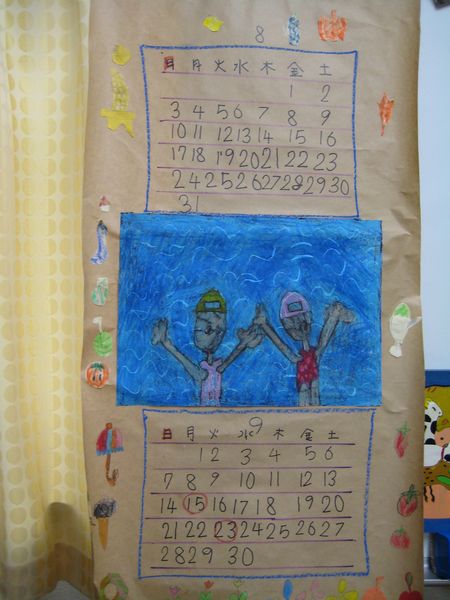 8
日 月 火 水 木 金 土
1 2
3 4 5 6 7 8 9
10 11 12 13 14 15 16
17 18 19 20 21 22 23
24 25 26 27 28 29 30
31
9
日 月 火 水 木 金 土
1 2 3 4 5 6
7 8 9 10 11 12 13
14 15 16 17 18 19 20
21 22 23 24 25 26 27
28 29 30